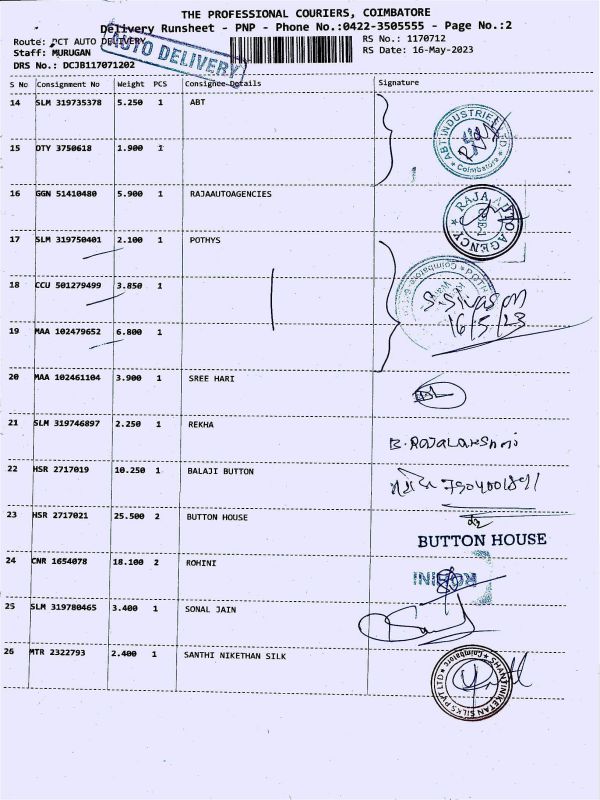 THE PROFESSIONAL COURIERS, COIMBATORE
Delivery Runsheet - PNP - Phone No.:0422-3505555 - Page No.:2
Route: PCT AUTO DELIVERY
RS No.: 1170712
Staff: MURUGAN
RS Date: 16-May-2023
DRS No.: DCJB117071202
AUTO DELIVERY
S No Consignment No Weight PCS Consignee Details Signature
14 SLM 319735378 5.250 1 ABT
ABT INDUSTRIES LTD
Coimbatore
15 DTY 3750618 1.900 1
16 GGN 51410480 5.900 1 RAJAAUTOAGENCIES
RAJA AUTO AGENCY
CBE-1
17 SLM 319750401 2.100 1 POTHYS
18 CCU 501279499 3.850 1
S. Sivason
16/5/23
19 MAA 102479652 6.800 1
20 MAA 102461104 3.900 1 SREE HARI
21 SLM 319746897 2.250 1 REKHA
B. RAJALAKSHMI
22 HSR 2717019 10.250 1 BALAJI BUTTON
23 HSR 2717021 25.500 2 BUTTON HOUSE
BUTTON HOUSE
24 CNR 1654078 18.100 2 ROHINI
ROHINI
25 SLM 319780465 3.400 1 SONAL JAIN
26 MTR 2322793 2.400 1 SANTHI NIKETHAN SILK
SHANTINIKETAN SILKS PVT LTD
Coimbatore